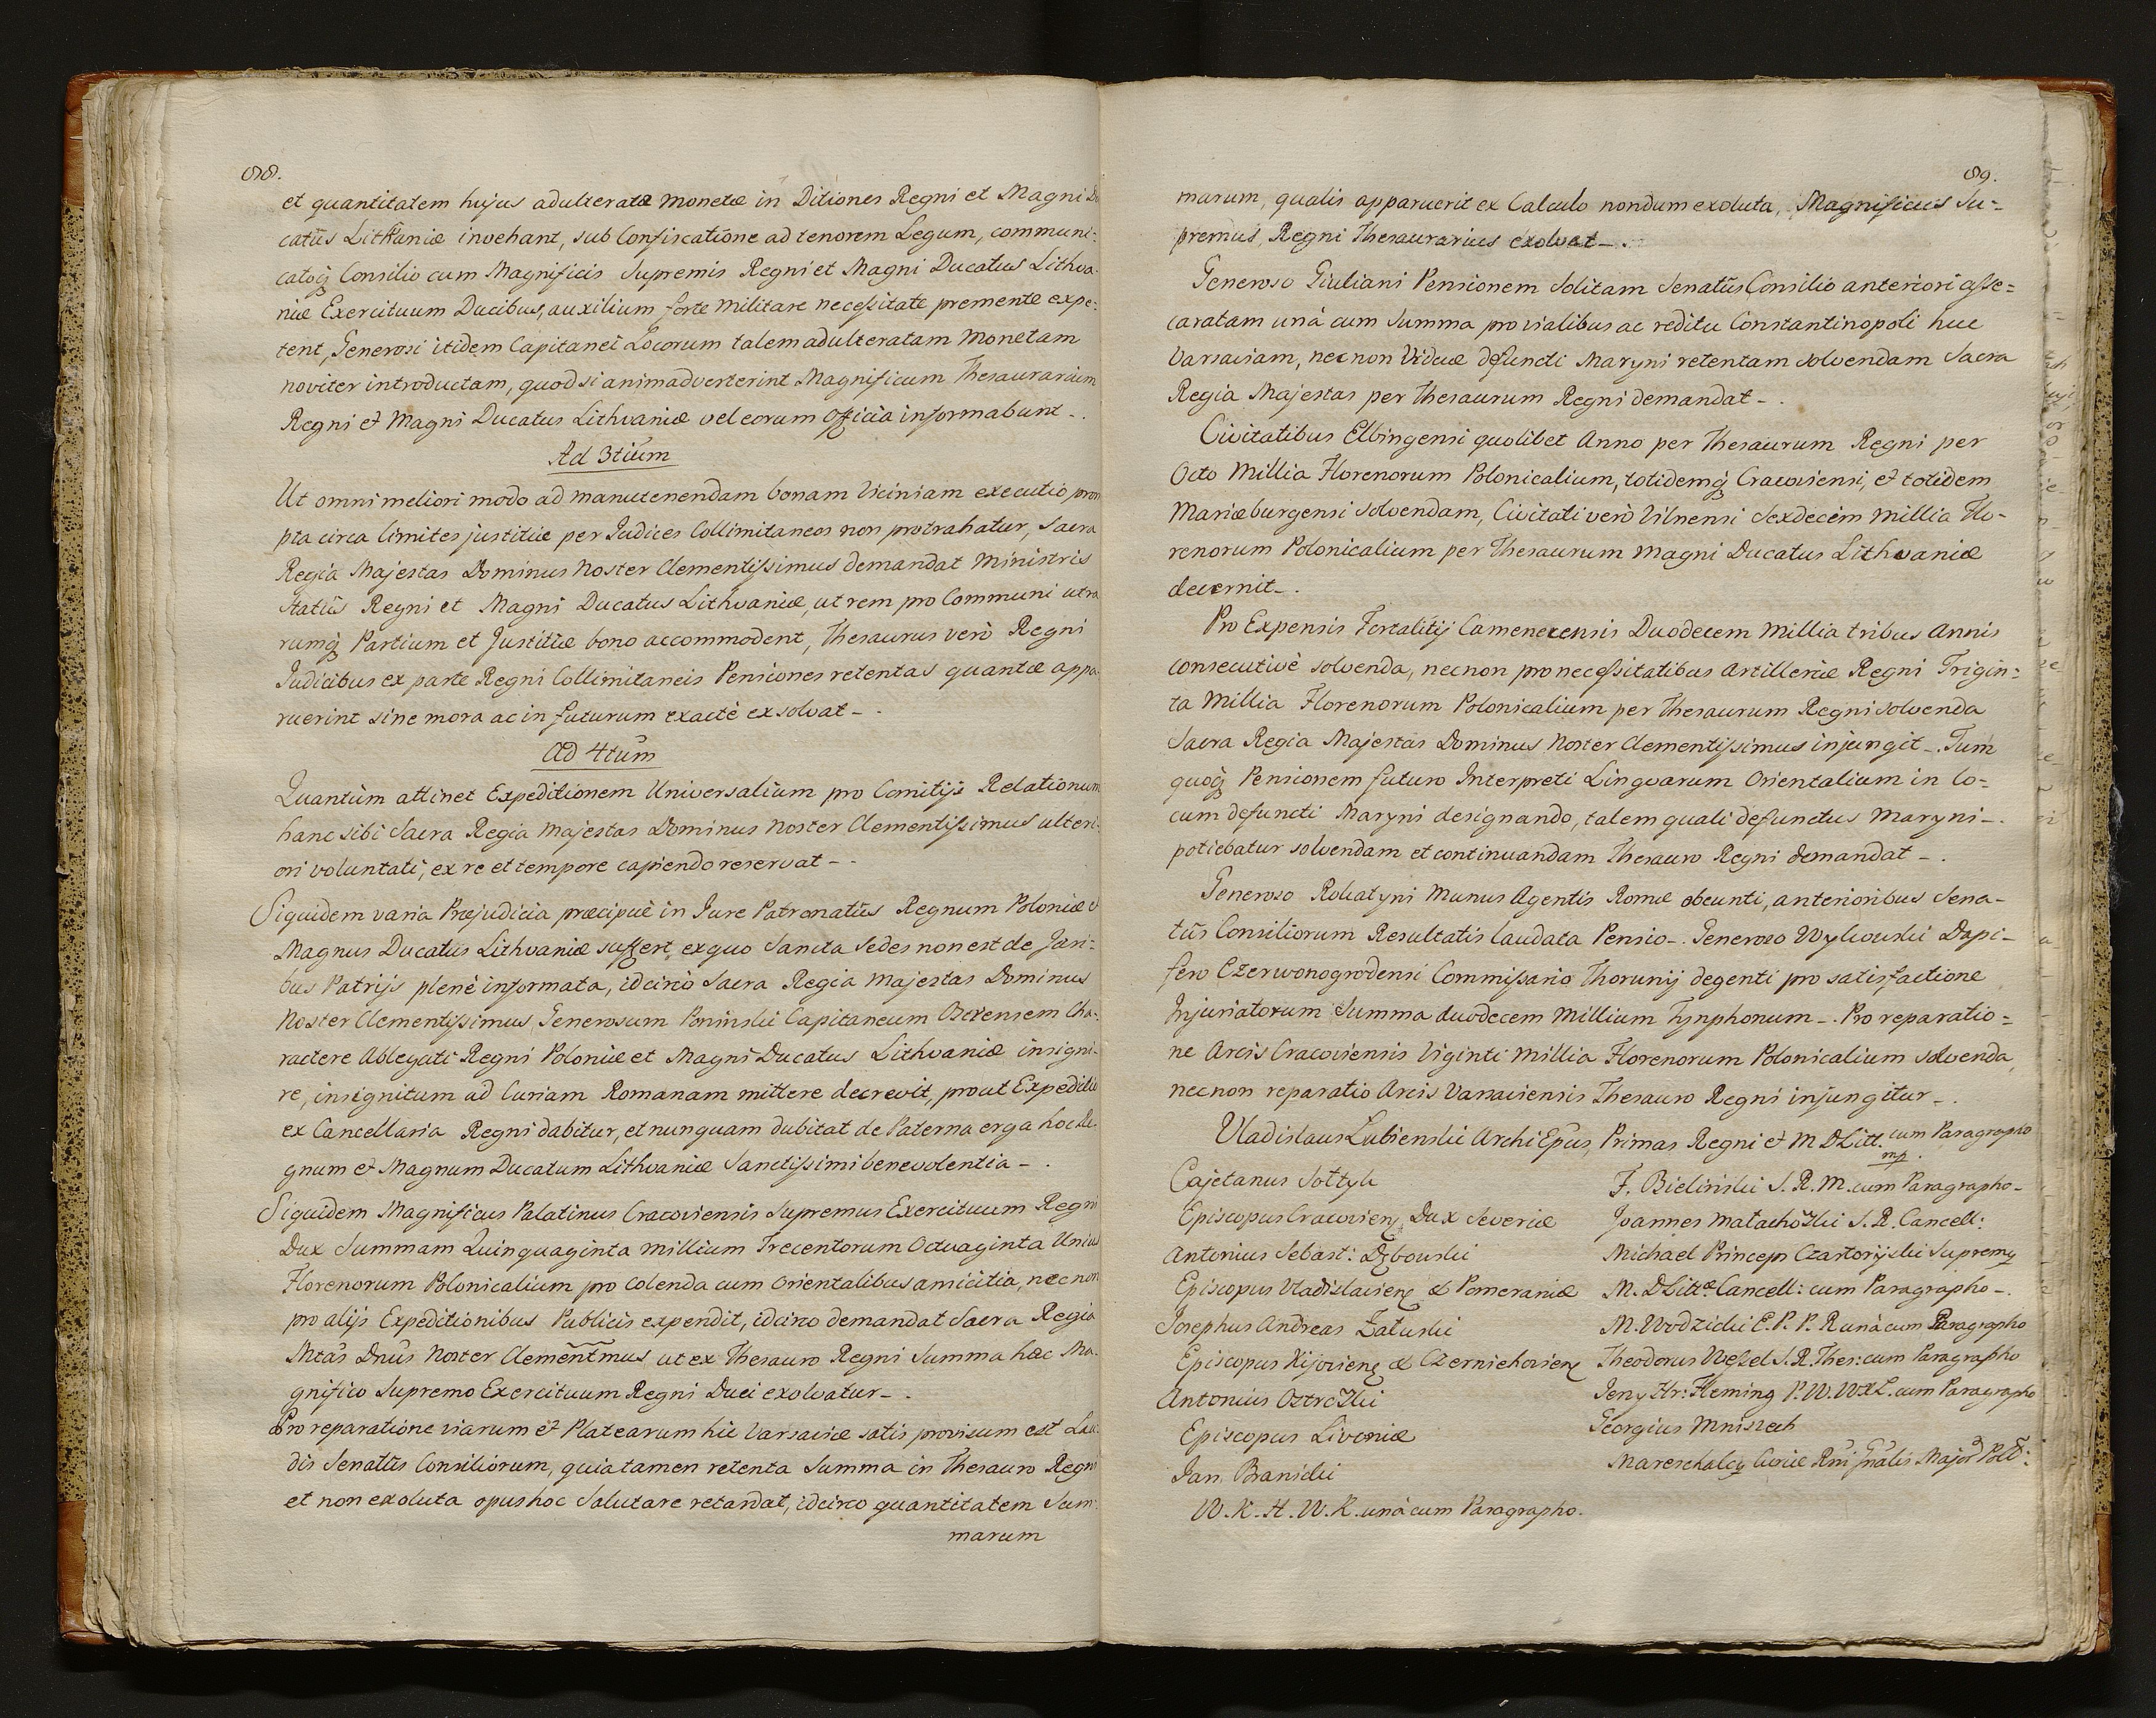 88.
et quantitatem hujus adulteratæ monetæ in Ditiones Regni et Magni Du
catûs Lithaniæ invehant, sub Confiscatione ad tenorem Legum, communi:
catoq; Consilio cum Magnificis Supremis Regni et Magni Ducatus Lithva:
niæ Exercituum Ducibus, auxilium forte militare necessitate premente expe:
tent, Generosi itidem Capitanei Locorum talem adulteratam Monetam
noviter introductam, quod si animadverterint Magnificum Thesaurarium
Regni et Magni Ducatus Lithvaniæ vel eorum Officia informabunt -.
Ad 3tium
Ut omni meliori modo ad manutenendam bonam Viciniam executio prom
pta circa limites justitiæ per Judices Collimitaneos non protrahatur, Sacra
Regia Majestas Dominus Noster Clementissimus demandat Ministris
Statûs Regni et Magni Ducatus Lithvaniæ, ut rem pro Communi utra
rumq; Partium et Justitiæ bono accommodent, Thesaurus verò Regni
Judicibus ex parte Regni Collimitaneis Pensiones retentas quantæ appa:
ruerint sine mora ac in futurum exactè exsolvat -.
Ad 4tum
Quantùm attinet Expeditionem Universalium pro Comitijs Relationum
hanc sibi Sacra Regia Majestas Dominus Noster Clementissimus ulteri:
ori voluntati, ex re et tempore capiendo reservat -.
Siquidem varia Præjudicia præcipuè in Jure Patronatûs Regnum Poloniæ &
Magnus Ducatus Lithvaniæ suffert, ex quo Sancta Sedes non est de Juri:
bus Patrijs plenè informata, idcircò Sacra Regia Majestas Dominus
Noster Clementissimus, Generosum Poninski Capitaneum Ostrensem Cha:
ractere Ablegati Regni Poloniæ et Magni Ducatus Lithvaniæ insigni:
re, insignitum ad Curiam Romanam mittere decrevit, prout Expeditio
ex Cancellaria Regni dabitur, et nunquam dubitat de Paterna erga hoc Re:
gnum et Magnum Ducatum Lithvaniæ Sanctissimi benevolentia -.
Siquidem Magnificus Palatinus Cracoviensis Supremus Exercituum Regni
Dux Summam Quinquaginta millium Trecentorum Octuaginta Unius
Florenorum Polonicalium pro colenda cum Orientalibus amicitia, nec non
pro alijs Expeditionibus Publicis expendit, idcirco demandat Sacra Regia
Mtas Dnus Noster Clementmus ut ex Thesauro Regni Summa hæc Ma:
gnifico Supremo Exercituum Regni Duci exolvatur -.
Pro reparatione viarum et Platearum hic Varsaviæ satis provisum est Lau:
dis Senatûs Consiliorum, quia tamen retenta Summa in Thesauro Regni
et non exoluta opus hoc Salutare retardat, idcirco quantitatem Sum:
marum
89.
marum, qualis apparuerit ex Calculo nondum exoluta, Magnificus Su:
premus Regni Thesaurarius exolvat -.
Generoso Giuliani Pensionem Solitam Senatûs Consilio anteriori asse=
caratam unà cum Summa pro vialibus ac reditu Constantinopoli huc
Varsaviam, nec non Viduæ defuncti Maryni retentam solvendam Sacra
Regia Majestas per Thesaurum Regni demandat -.
Civitatibus Elbingensi quolibet Anno per Thesaurum Regni per
Octo Millia Florenorum Polonicalium, totidemq; Cracoviensi, et totidem
Mariæburgensi solvendam, Civitati verò Vilnensi Sexdecim millia Flo-
renorum Polonicalium per Thesaurum Magni Ducatus Lithvaniæ
decernit -.
Pro Expensis Fortalitij Camenecensis Duodecem Millia tribus Annis
consecutivè solvenda, necnon pro necessitatibus Artilleriæ Regni Trigin:
ta Millia Florenorum Polonicalium per Thesaurum Regni solvenda
Sacra Regia Majestas Dominus Noster Clementissimus injungit -. Tum
quoq; Pensionem futuro Interpreti Lingvarum Orientalium in lo-
cum defuncti Maryni designando, talem quali defunctus Maryni -.
potiebatur solvendam et continuandam Thesauro Regni demandat -.
Generoso Rokatyni Munus Agentis Romæ obeunti, anterioribus Sena-
tûs Consiliorum Resultatis laudata Pensio -. Generoso Wykowski Dapi-
fero Czerwonogrodensi Commissario Thorunij degenti pro satisfactione
Injuriatorum Summa duodecem Millium Tynphonum -. Pro reparatio=
ne Arcis Cracoviensis Viginti Millia Florenorum Polonicalium solvenda,
necnon reparatio Arcis Varsaviensis Thesauro Regni injungitur -.
Vladislaus Lubienski ArchiEpus, Primas Regni et M DLitt. cum Paragrapho
mp.
Cajetanus Sołtyk
Episcopus Cracovieng Dux Severiæ
Antonius Sebast: Dębowski
Episcopus Vladislavieng & Pomeraniæ
Josephus Andreas Załuski
Episcopus Kijovieng & Czerniehovieng
Antonius Ostroski
Episcopus Livoniæ
Jan Branicki
W. K. H. W. K. unà cum Paragrapho.
F. Bieliński S. R. M. cum Paragrapho -
Joannes Małachoski S. R. Cancell:
Michael Princeps Czartoryski Supremg
M. DLittæ Cancell: cum Paragrapho -.
M. Wodzicki E. P. P. R unà cum Paragrapho
Theodorus Wessel S. R. Thes: cum Paragrapho
Jerzy Hr: Fleming P. W. WXL. cum Paragrapho
Georgius Mniszech
Mareschalcg Curiæ Rni Gnalis Major Pold: